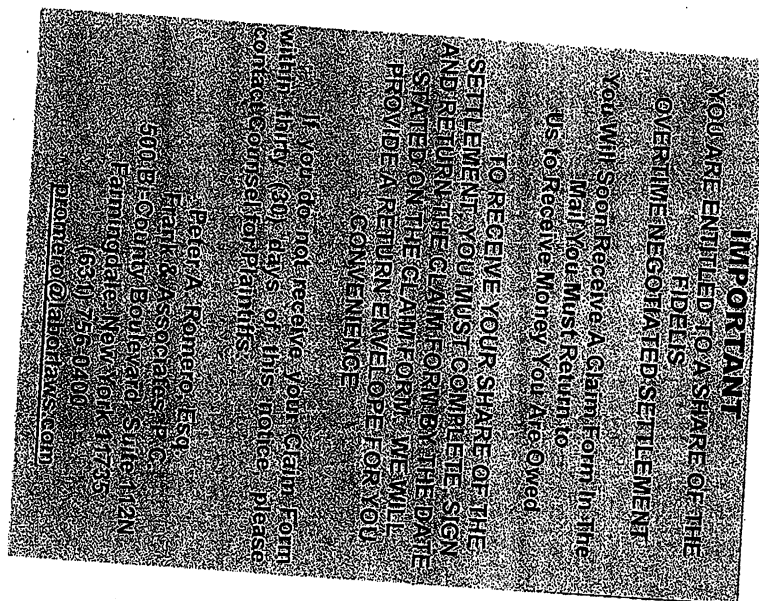 IMPORTANT
YOU ARE ENTITLED TO A SHARE OF THE
FIDELIS
OVERTIME NEGOTIATED SETTLEMENT
You Will Soon Receive A Claim Form In The
Mail You Must Return to
Us to Receive Money You Are Owed
TO RECEIVE YOUR SHARE OF THE
SETTLEMENT, YOU MUST COMPLETE, SIGN
AND RETURN THE CLAIM FORM BY THE DATE
STATED ON THE CLAIM FORM. WE WILL
PROVIDE A RETURN ENVELOPE FOR YOU
CONVENIENCE
If you do not receive your Claim Form
within thirty (30) days of this notice please
contact Counsel for Plaintiffs:
Peter A. Romero, Esq.
Frank & Associates, P.C.
500 Bi-County Boulevard, Suite 112N
Farmingdale, New York 11735
(631) 756-0400
promero@laborlaws.com